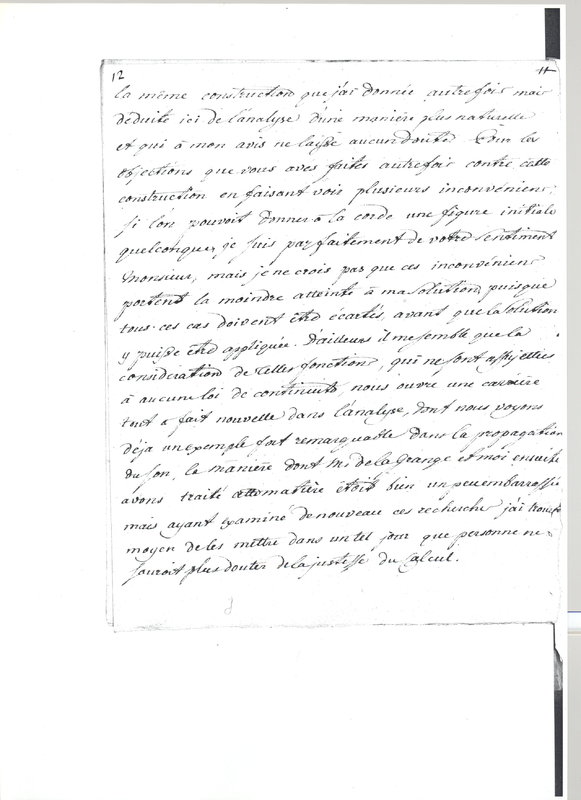 12
la même construction que j'ai donnée autrefois mais
deduite ici de l'analyse d'une manière plus naturelle
et qui à mon avis ne laisse aucun doute. Pour les
objections que vous aves faites autrefois contre cette
construction en faisant voir plusieurs inconvéniens,
si l'on pouvoit donner à la corde une figure initiale
quelconque, je suis parfaitement de votre sentiment
Monsieur, mais je ne crois pas que ces inconvéniens
portent la moindre atteinte à ma solution, puisque
tous ces cas doivent etre ecartés, avant que la solution
y puisse etre appliquée. D'ailleurs il me semble que la
consideration de telles fonctions, qui ne sont assujetties
à aucune loi de continuité, nous ouvre une carrière
tout a fait nouvelle dans l'analyse, dont nous voyons
déja un exemple fort remarquable dans la propagation
du son, la manière dont Mr de la Grange et moi ensuite
avons traité cette matière étoit bien un peu embarrassée
mais ayant examiné de nouveau ces recherches j'ai trouvé
moyen de les mettre dans un tel jour que personne ne
sauroit plus douter de la justesse du Calcul.